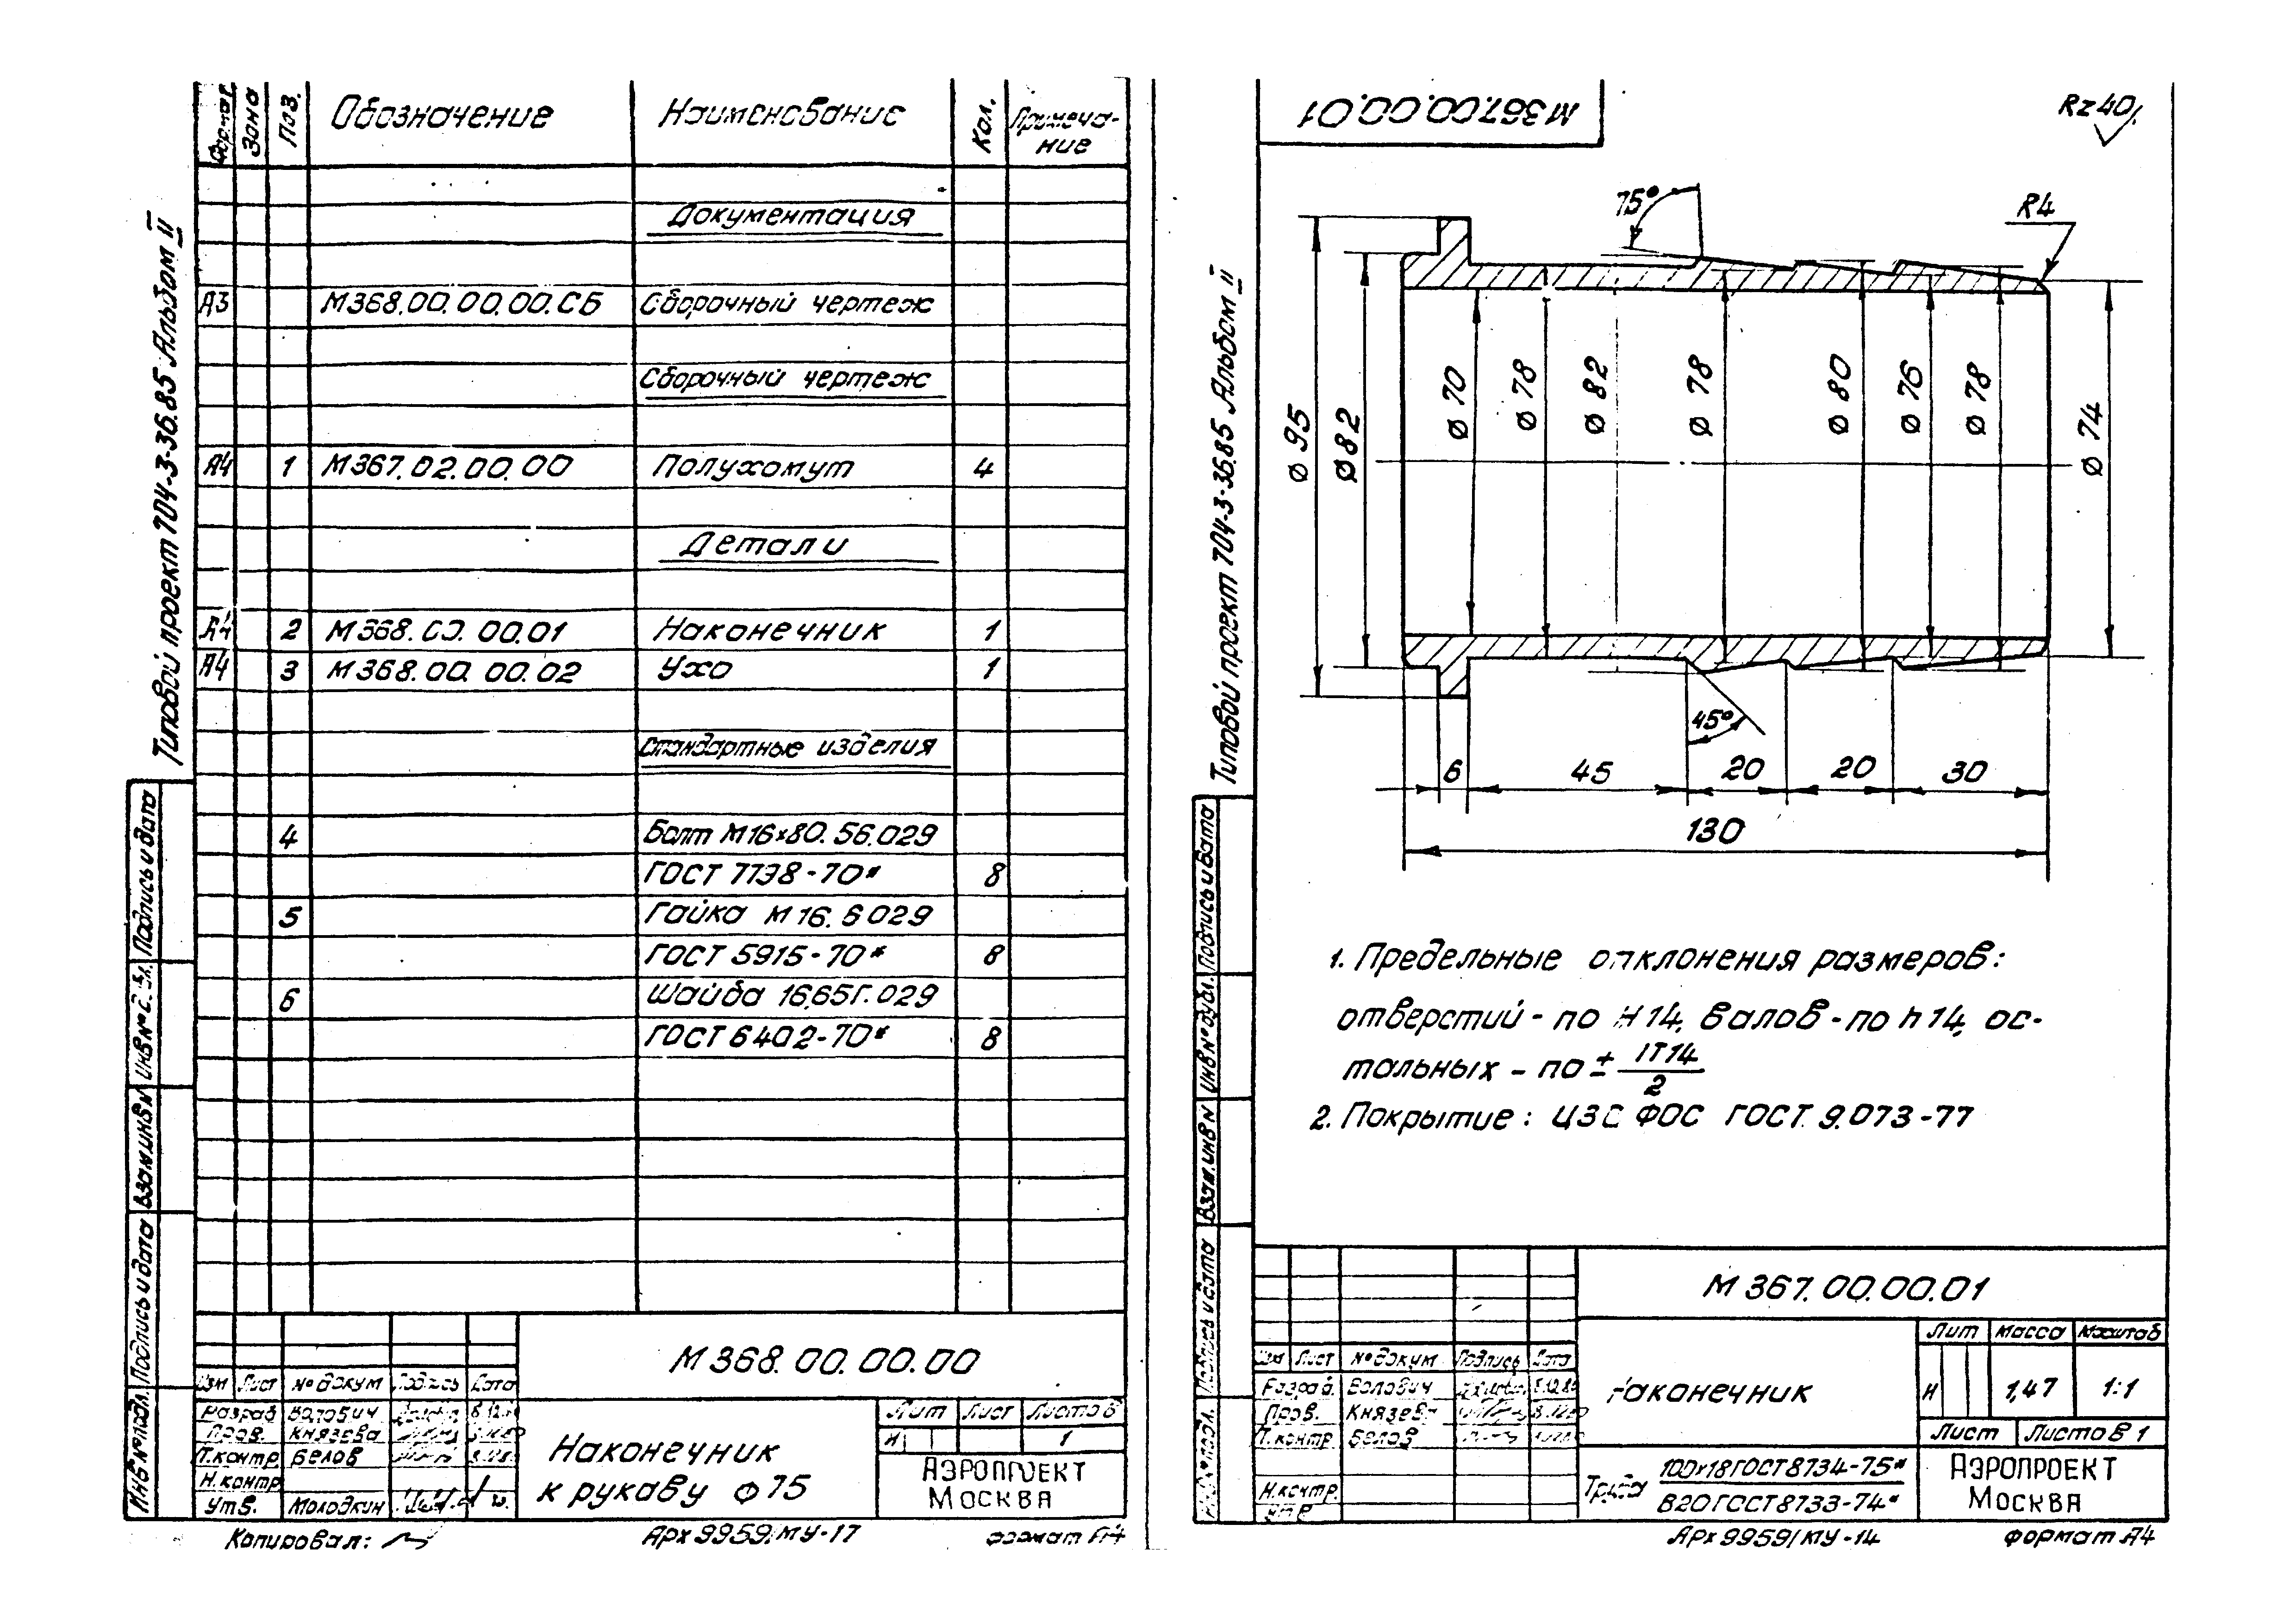 Типовой проект 704-3-36.85 Альбом II
Формат Зона Поз. Обозначение Наименование Кол. Примеча-
ние
Документация
А3 М368.00.00.00.СБ Сборочный чертеж
Сборочный чертеж
А4 1 М367.02.00.00 Полухомут 4
Детали
А4 2 М368.00.00.01 Наконечник 1
А4 3 М368.00.00.02 Ухо 1
Стандартные изделия
4 Болт М16×80.56.029
ГОСТ 7738-70* 8
5 Гайка М16.6029
ГОСТ 5915-70* 8
6 Шайба 16.65Г.029
ГОСТ 6402-70* 8
Подпись и дата
Взам. инв №
Подпись и дата
Инв № подл.
М368.00.00.00
Изм Лист № докум Подпись Дата
Разраб Волович
Пров. Князева
Т.контр Белов
Н.контр
Утв. Молодкин
Наконечник
к рукаву ф75
Лит Лист Листов
И 1
АЭРОПРОЕКТ
МОСКВА
Копировал:
Арх 9959/МУ-17
формат А4
Типовой проект 704-3-36.85 Альбом II
М367.00.00.01
Rz40
75°
R4
ø95
ø82
ø70
ø78
ø82
ø78
ø80
ø76
ø78
ø74
45°
6 45 20 20 30
130
1. Предельные отклонения размеров:
отверстий - по Н14, валов - по h14, ос-
тальных - по ± IT14
2
2. Покрытие: ЦЗС ФОС ГОСТ. 9.073-77
Подпись и дата
Инв № дубл.
Взам. инв №
Подпись и дата
М367.00.00.01
Изм Лист № докум Подпись Дата
Разраб. Волович
Пров. Князева
Т.контр Белов
Н.контр.
Утв
Наконечник
Лит Масса Масштаб
И 1,47 1:1
Лист Листов 1
Труба 100×18 ГОСТ 8734-75*
В20 ГОСТ 8733-74*
АЭРОПРОЕКТ
МОСКВА
Арх 9959/МУ-14
формат А4